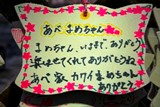 あべ まめちゃん
まめちゃん、いままで、ありがとう
楽ませてくれてありがとうね
あべ家 カワイまめちゃん
ありがとう